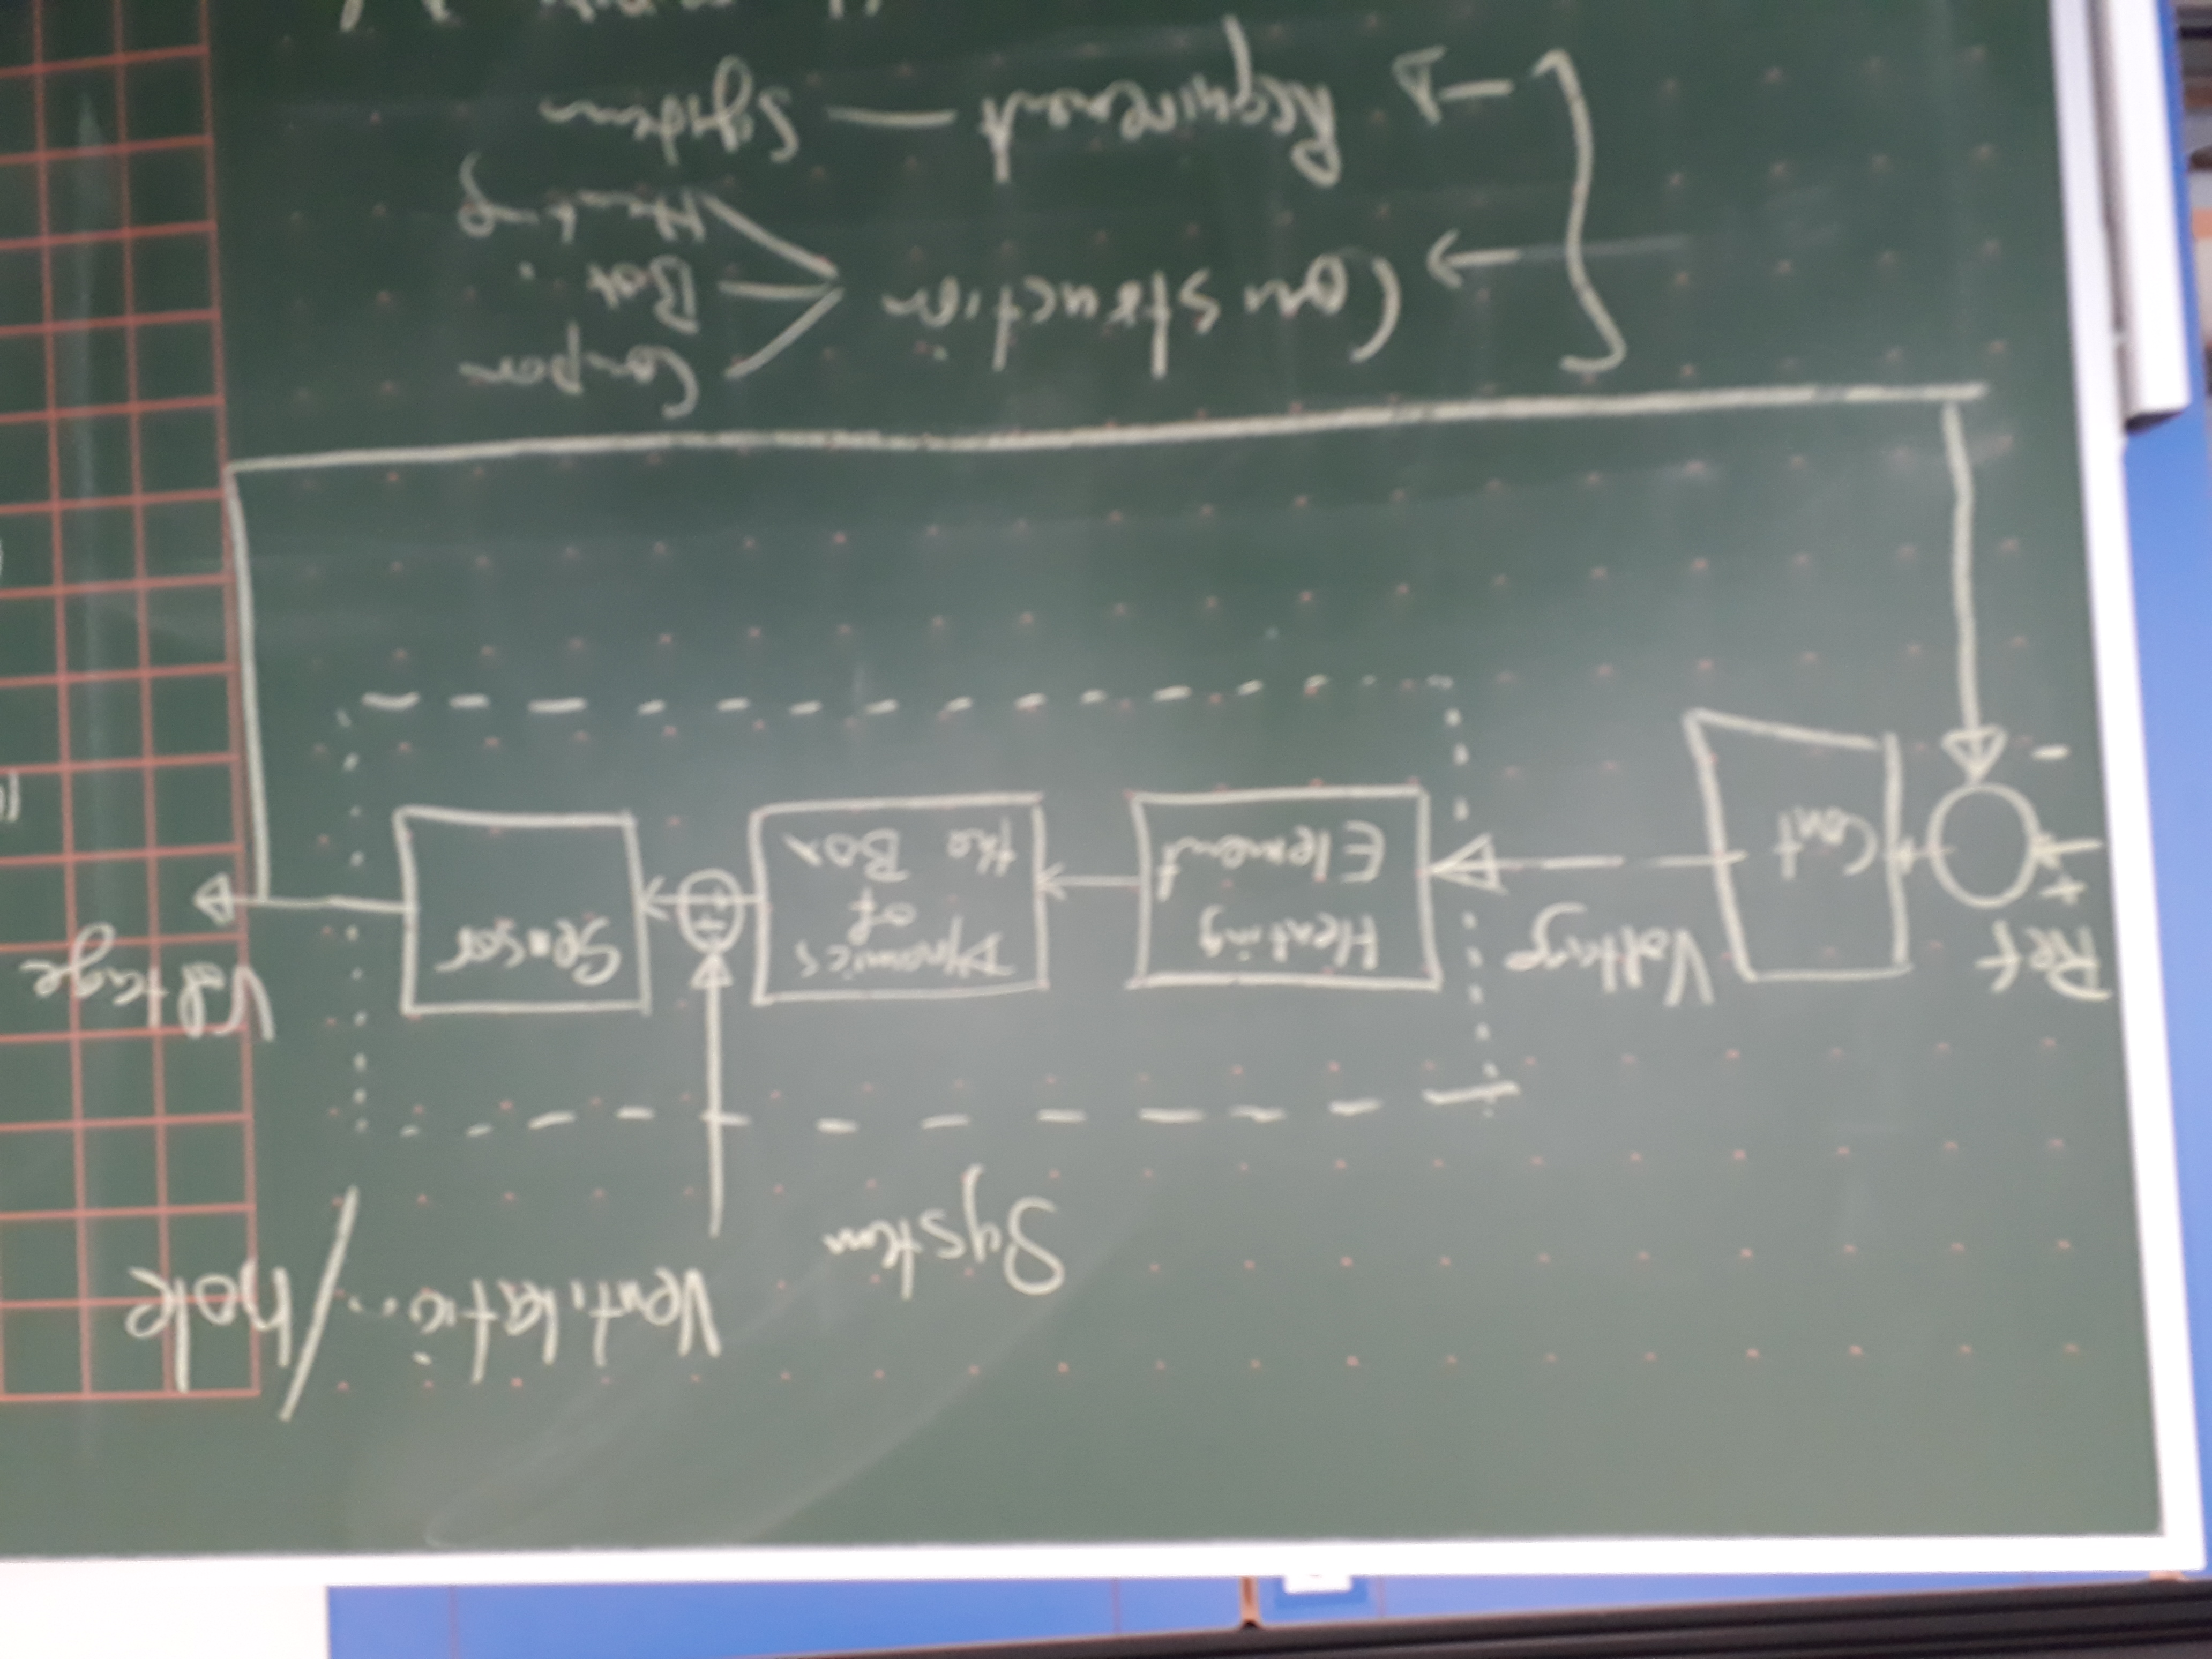 System
Ventilation/hole
Ref
+
-
Cont
Voltage
Heating
Element
Dynamics
of
the Box
Sensor
Voltage
→ Construction
Coupon
Box
Heating
→ Requirement — System